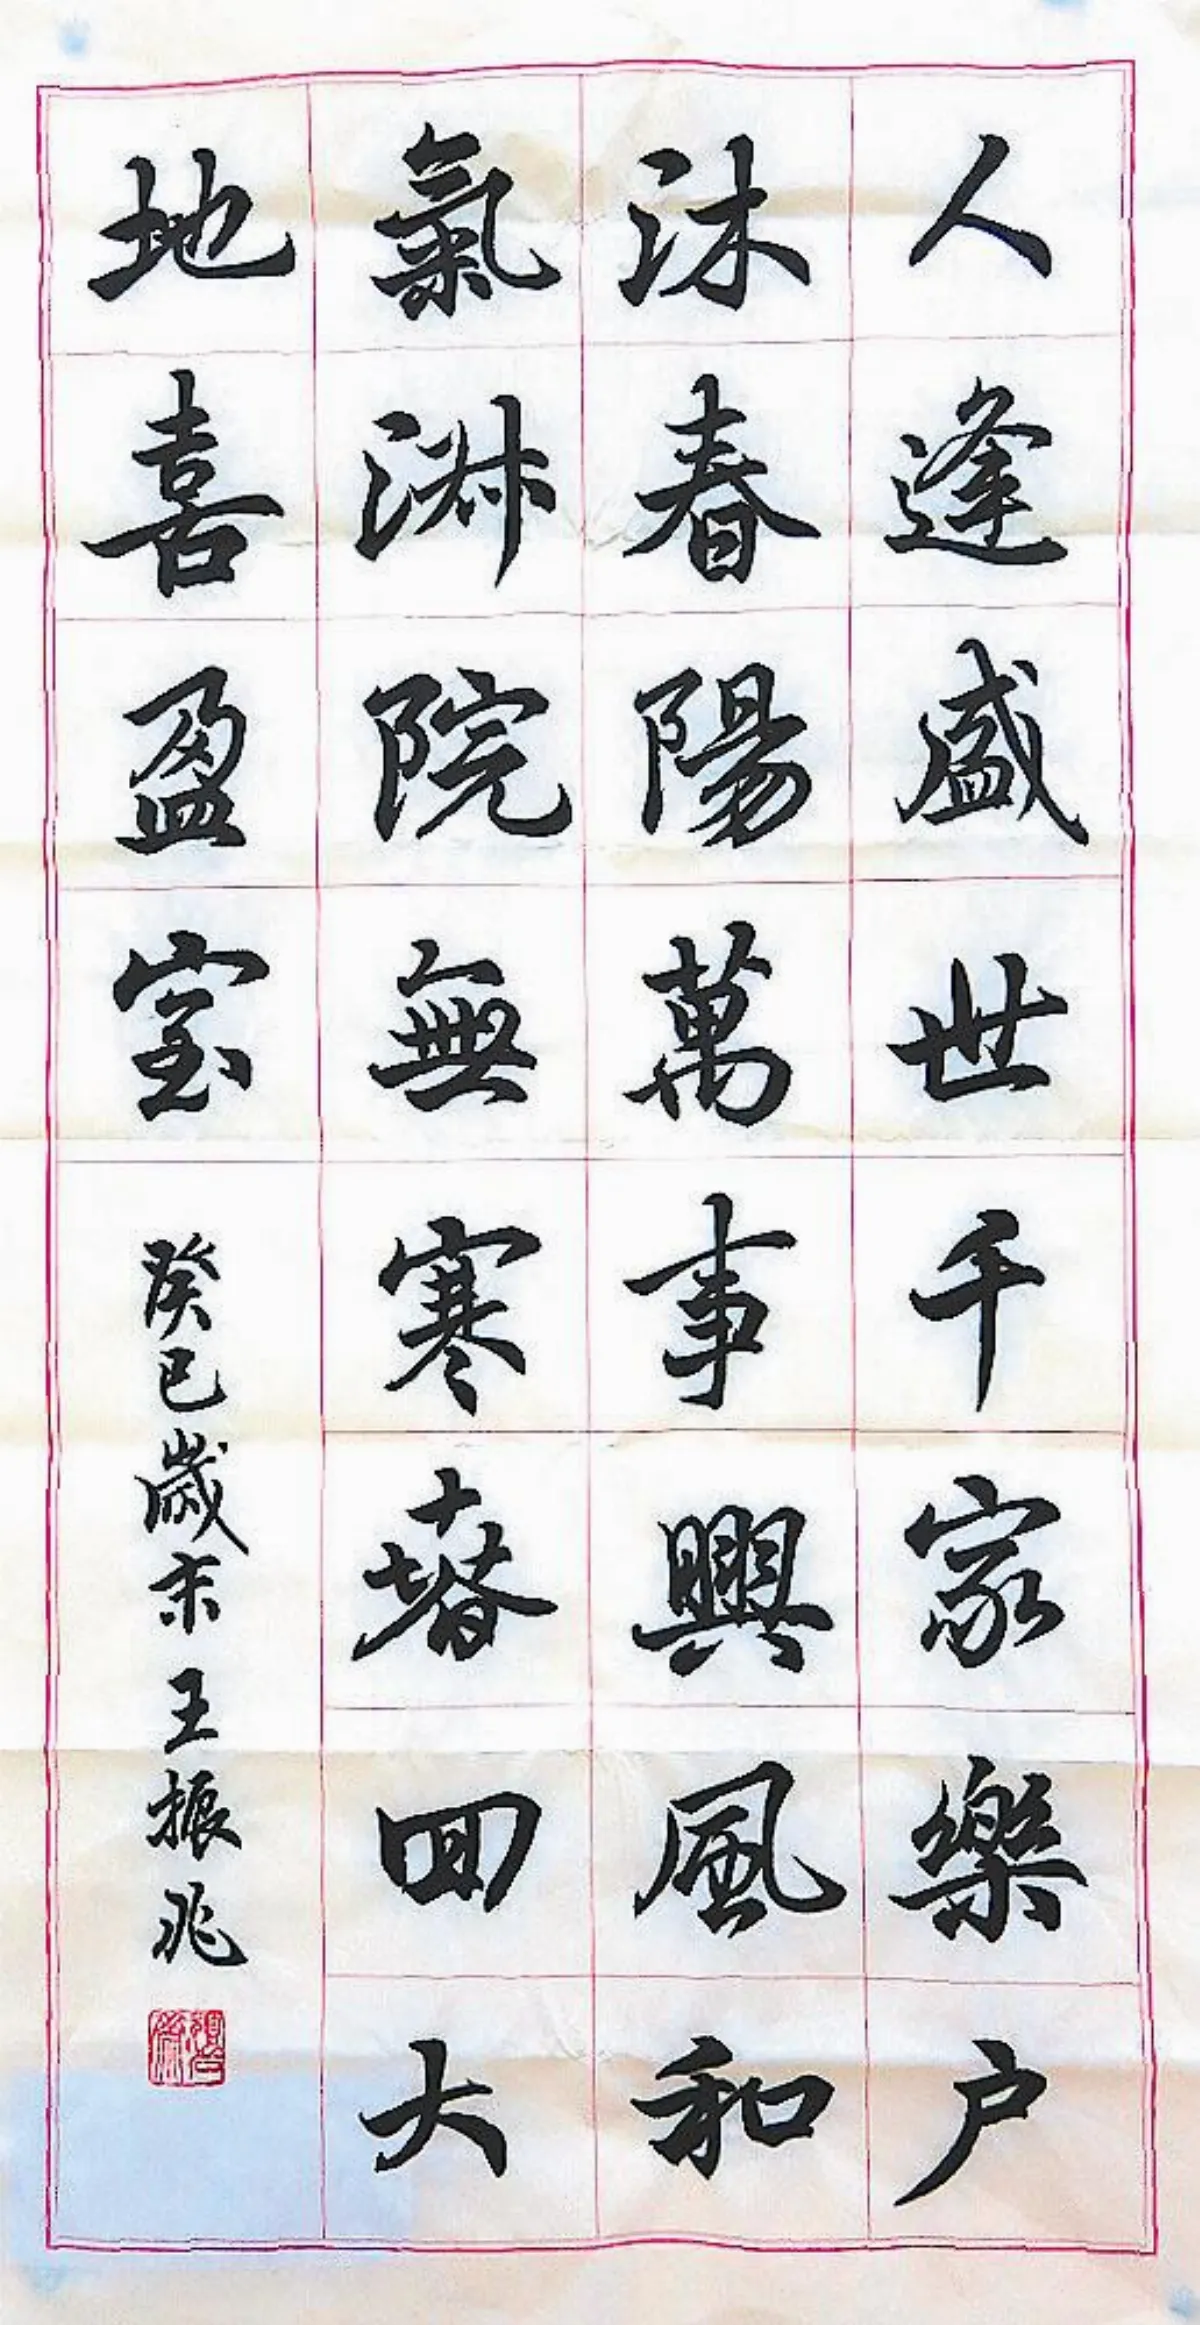 人逢盛世千家樂户
沐春陽萬事興風和
氣淑院無寒春回大
地喜盈室
癸巳歲末王振兆